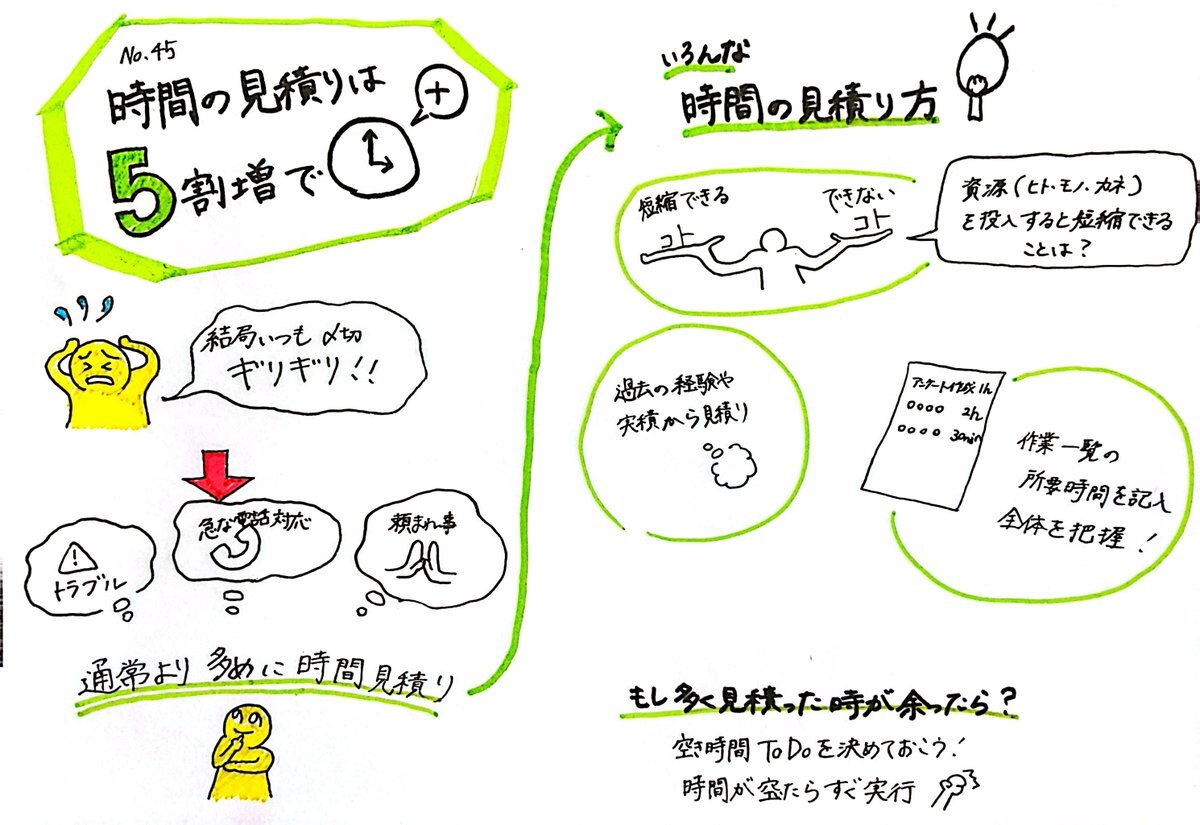 No.45
時間の見積りは
5割増で
結局いつも〆切
ギリギリ!!
トラブル
急な電話対応
頼まれ事
通常より多めに時間見積り
いろんな
時間の見積り方
短縮できる
コト
できない
コト
資源(ヒト・モノ・カネ)
を投入すると短縮できる
ことは?
過去の経験や
実積から見積り
アンケート作成 1h
○○○○ 2h
○○○○ 30min
作業一覧の
所要時間を記入
全体を把握!
もし多く見積った時が余ったら?
空き時間ToDoを決めておこう!
時間が空たらすぐ実行